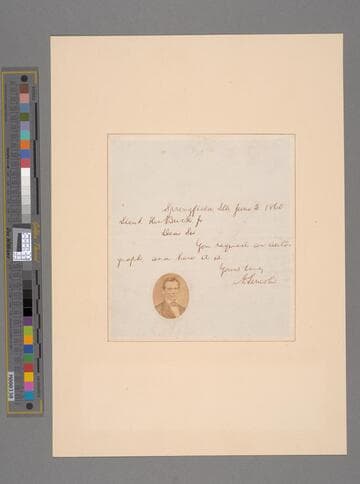 Springfield, Ills. June 2. 1860
Buck Jr
Dear Sir
You request an auto-
graph, and here it is.
Yours truly,
A. Lincoln